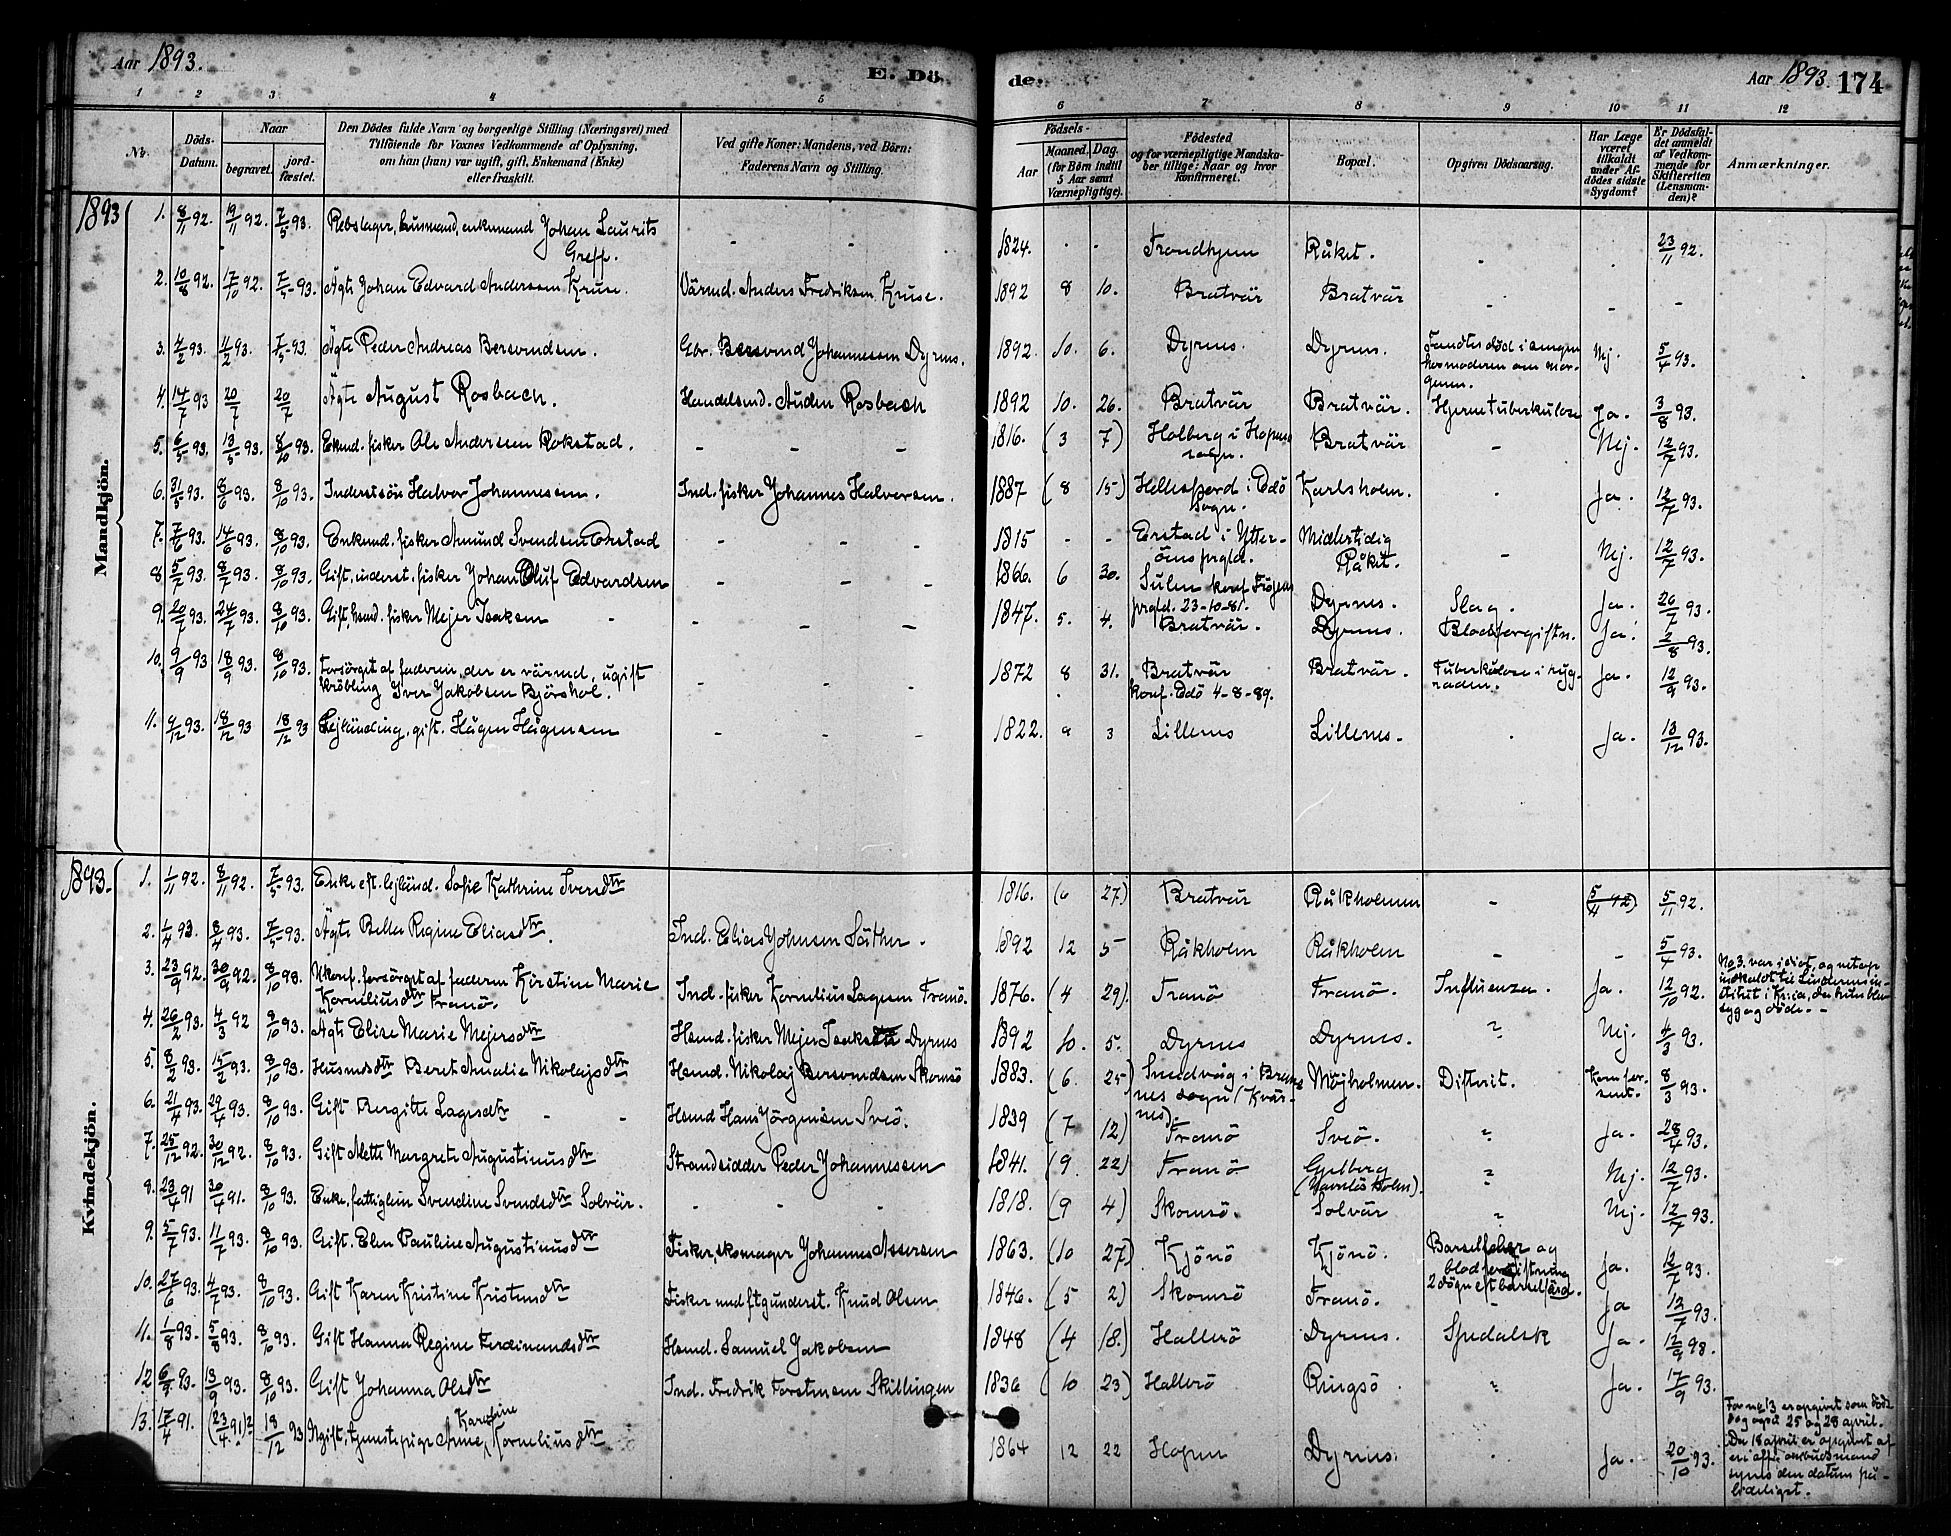 Aar 1893.
E. Döde.
Aar 1893. 174
1 2 3 4 5 6 7 8 9 10 11 12
No.
Döds-Datum.
Naar
begravet.
jord-fæstet.
Den Dödes fulde Navn og borgerlige Stilling (Næringsvei) med
Tilföiende for Voxnes Vedkommende af Oplysning,
om han (hun) var ugift, gift, Enkemand (Enke)
eller fraskilt.
Ved gifte Koner: Mandens, ved Börn:
Faderens Navn og Stilling.
Födsels-
Aar
Maaned. Dag.
(for Börn indtil
5 Aar samt
Værnepligtige).
Födested
og for værnepligtige Mandska-
ber tillige: Naar og hvor
konfirmeret.
Bopæl.
Opgiven Dödsaarsag.
Har Læge
været
tilkaldt
under Af-
dödes sidste
Sygdom?
Er Dödsfal-
det anmeldt
af Vedkom-
mende for
Skifteretten
(Lensman-
den)?
Anmærkninger.
1893
Mandkjön.
1. 8/11 92. 19/11 92. 7/5 93. Rebslager, husmand, enkemand Johan Laurits Greff. - - 1824. - - Trondhjem Råket. - - 23/11 92.
2. 10/8 92. 17/10 92. 7/5 93. Ägte Johan Edvard Andersen Kruse. Värmd. Anders Fredriksen Kruse. 1892 8 10. Bratvär Bratvär - - -
3. 4/2 93. 11/2 93. 7/5 93. Ägte Peder Andreas Bersvendsen. Gbr. Bersvend Johannessen Dyrnes. 1892. 10. 6. Dyrnes. Dyrnes. Fandtes död i sengen hos moderen om mor-genen. Nej. 5/4 93.
4. 14/7 93 20/7 20/7 Ägte August Rosbach. Handelsmd. Auden Rosbach 1892 10. 26. Bratvär Bratvär. Hjernetuberkulose Ja. 3/8 93.
5. 6/5 93. 13/5 93. 8/10 93. Ekmd. fisker Ole Andersen Rokstad. - - - 1816. (3 7) Holberg i Hopens sogn. Bratvär - Nej. 12/7 93.
6. 31/5 93. 8/6 93. 8/10 93. Inderstsön Halvor Johannessen. Ind. fisker Johannes Halvorsen. 1887 (8 15) Hellesfjord i Edö sogn. Karlsholm. - Ja. 12/7 93.
7. 7/6 93. 14/6 93. 8/10 93. Enkmd. fisker Amund Svendsen Erstad - - - 1815 - - Erstad i Ytter-öens prgld. Midlertidig Råket. - Nej. 12/7 93.
8. 5/7 93. 8/7 93. 8/10 93. Gift, inderst, fisker Johan Oluf Edvardsen - - - 1866. 6 30. Sulen konf. Fröyens prgld. 23-10-81. Dyrnes. Slag. Ja. 26/7 93.
9. 20/7 93. 24/7 93. 8/10 93. Gift, hsmd. fisker Mejer Isaksen - - - 1847. 5. 4. Bratvär. Dyrnes. Blodforgiftn. Ja. 2/8 93.
10. 9/9 93 18/9 93. 8/10 93. Forsörget af faderen, der er värmd, ugift kröbling Iver Jakobsen Björshol. - - - 1872 8 31. Bratvär konf. Edö 4-8-89. Bratvär. Tuberkulose i ryg-raden. Ja. 12/9 93.
11. 9/12 93. 18/12 93 18/12 93 Lejländing, gift. Hågen Hågensen - - - 1822. 9 3 Lillenes Lillenes. - Ja. 13/12 93.
1893.
Kvindekjön.
1. 1/11 92. 8/11 92. 7/5 93. Enke eft. lejländ. Sofie Kathrine Iversdtr 1816. (6 27.) Bratvär Råkholmen - 5/11 92.
2. 1/4 93. 8/4 93. 7/5 93. Ägte Bella Regine Eliasdtr. Ind. Elias Johnsen Säther. 1892 12 5 Råkholm Råkholm - - 5/4 93.
3. 23/9 92. 30/9 92. 8/10 93. Ukonf. forsörget af faderen Kirstine Marie Korneliusdtr Franö. Ind. fisker Kornelius Lagesen Franö. 1876. (4 29). Franö Franö. Influenza. Ja. 12/10 92. No 3. var idiot, og netop indkaldt til Lindems in-stitut i Kr:ia, da hun blev syg og döde. -
4. 26/2 93. 4/3 92 8/10 93. Ägte Elise Marie Mejersdtr Hsmd. fisker Mejer Isaksen Dyrnes 1892 10. 5. Dyrnes Dyrnes. " Nej. 4/3 93.
5. 8/2 93. 15/2 93. 8/10 93. Husmdsdtr Beret Amalie Nikolajsdtr Hsmd. Nikolaj Bersvendsen Skomsö 1883. (6. 25) Smedvåg i Brems-nes sogn (Kvär-nes). Möjholmen. Difterit. 8/3 93.
6. 21/4 93. 29/4 93. 8/10 93. Gift Bergitte Lagesdtr - - Hsmd Hans Jörgensen Sveö. 1839 (7 12) Franö Sveö. " Ja. 28/4 93.
7. 25/12 92. 30/12 92. 8/10 93. Gift Mette Margrete Augustinusdtr Strandsidder Peder Johannessen 1841. (9. 22) Franö Gjelberg " Nej. 12/7 93.
8. 23/4 91 30/4 91. 8/10 93. Enke, fattiglem Svendine Svendsdtr Solvär. - - - 1818. (9 4) Skomsö. Solvär " Nej. 12/7 93.
9. 5/7 93. 11/7 93. 8/10 93. Gift. Elen Pauline Augustinusdtr Fisker, skomager Johannes Assersen 1863. (10 27) Kjönö Kjönö. Barselfeber og blodforgiftning 2 dögn eft barselfärd. Ja. 12/7 93.
10. 27/6 93. 4/7 93. 8/10 93. Gift Karen Kristine Kristensdtr Fisker med ftgunderst. Knud Olsen 1846. (5 2) Skomsö Franö. - Ja 12/7 93.
11. 1/8 93. 5/8 93. 8/10 93. Gift Hanna Regine Ferdinandsdtr Hsmd. Samuel Jakobsen 1848 (4 18.) Hallerö Dyrnes. Spedalsk Ja. 12/9 93.
12 6/9 93. 13/9 93. 8/10 93. Gift Johanna Olsdtr Ind. Fredrik Forstmann Skillingen 1836 (10 23) Hallerö Ringsö " Ja. 17/9 93.
13. 17/4 91. (23/4 91)? 18/12 93 Ugift, tjenestepige Anne Karoline Korneliusdtr 1864 12 22 Hopen Dyrnes. - Ja. 20/10 93. For no 13 er opgivet som döds-dag også 25 og 28 april. Den 18 april er opgivet af ombudsmand synes den datum på-lideligst.